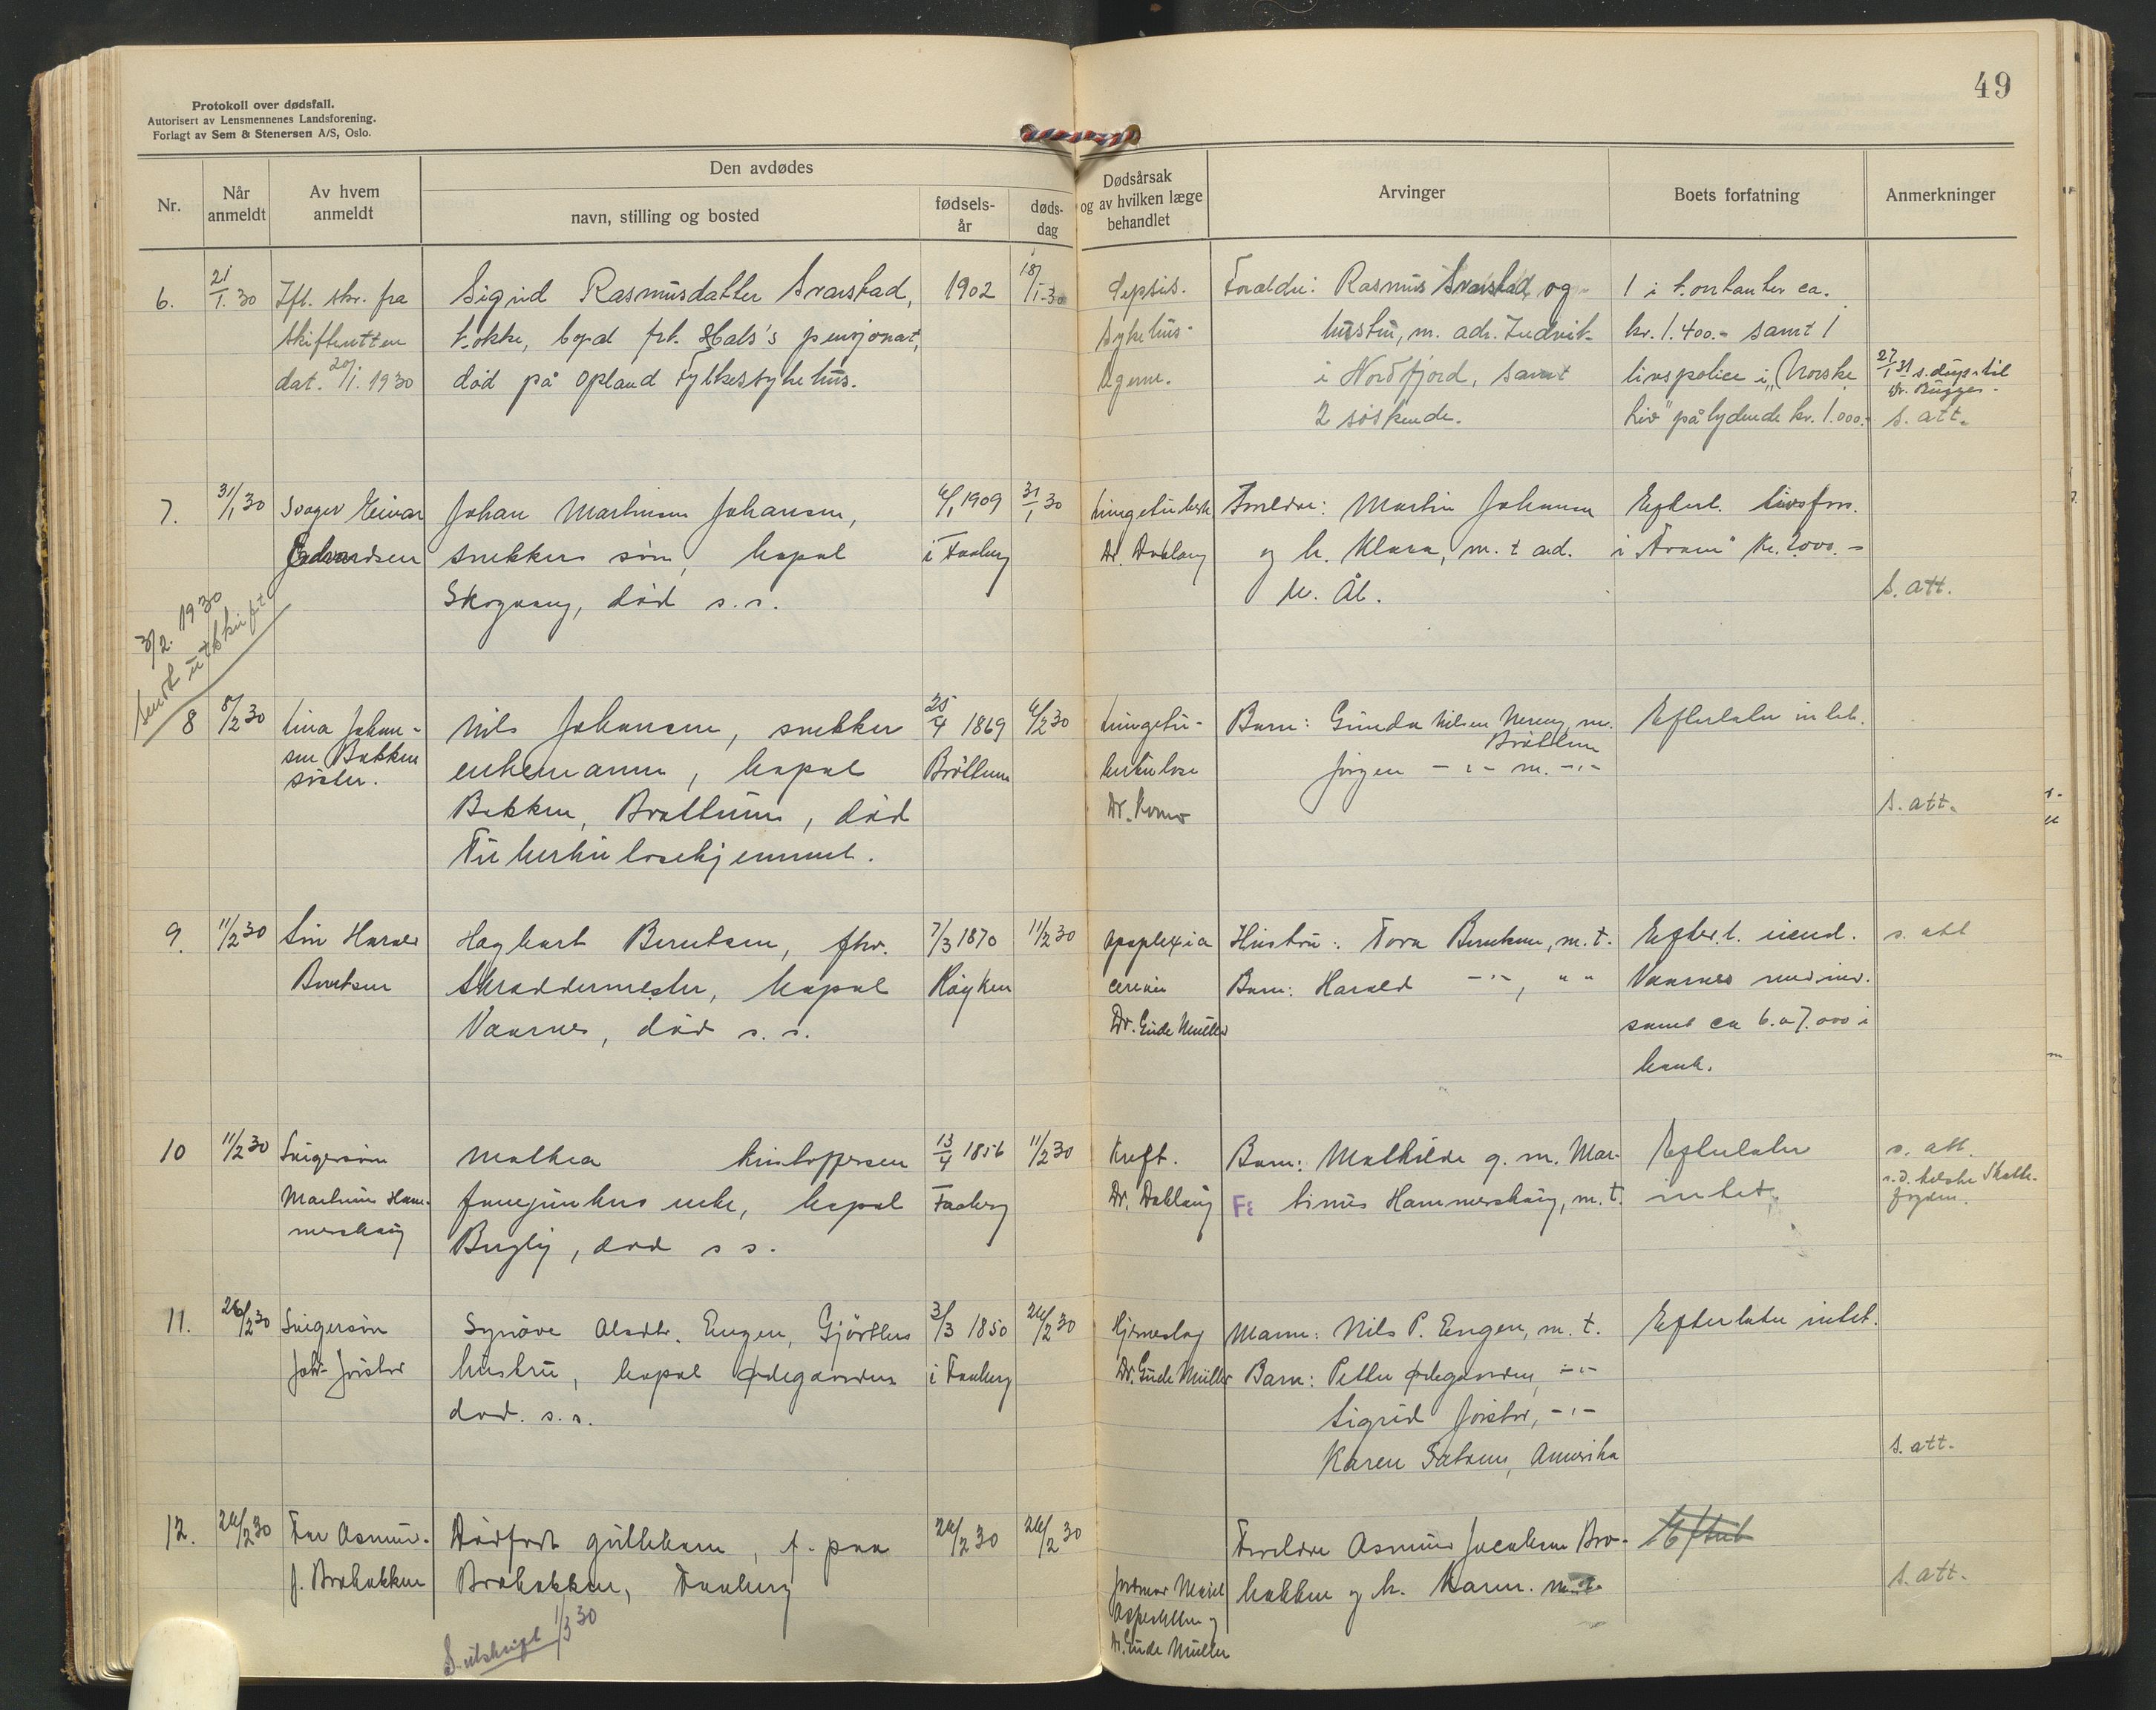 49
Protokoll over dødsfall.
Autorisert av Lensmennenes Landsforening.
Forlagt av Sem & Stenersen A/S, Oslo.
Nr.
Når anmeldt
Av hvem anmeldt
Den avdødes
navn, stilling og bosted
fødsels-år
døds-dag
Dødsårsak og av hvilken læge behandlet
Arvinger
Boets forfatning
Anmerkninger
6.
21/1.30
Ifl. skr. fra
skifteretten
dat. 20/1.1930
Sigrid Rasmusdatter Svarstad,
kokke, bopæl frk. Hals's pensjonat,
död på Opland Fylkessykehus.
1902
18/1.30
Sepsis.
Sykehus-
lægerne.
Forældre: Rasmus Svarstad og
hustru, m. adr.
i Nordfjord, samt
2 söskende.
1 i kontanter ca.
kr. 1.400.- samt 1
livspolice i „Norske
Liv" pålydende kr. 1.000.-
27/1 31 s. dups til
Dr. Bugges.
s. att.
7.
31/1 30
Svoger Einar
Edvardsen
Johan Martinsen Johansen,
snekkers sön, bopæl
Skogvang, död s.s.
6/1 1909
i Faaberg
31/1 30
Lungetuberk
Dr. Dablaug
Forældre: Martin Johansen
og h. Klara, m. t. ad.
N. Ål.
Efterl. livsfors.
i „Fram" Kr. 2000.-
s. att.
3/2. 1930
Sendt utskrift
8
8/2 30
Lina Johan-
sen Bakken
söster.
Nils Johansen, snekker
enkemann, bopæl
Bakken, Bröttum, död
Tuberkulosehjemmet.
25/4 1869
Bröttum
6/2 30
Lungetu-
berkulose
Dr. Romo
Barn: Gunda Nilsen Nereng, m.
Bröttum
Jörgen -"- m. -"-
Efterlater intet.
s. att.
9.
11/2 30
Sön Harald
Berntsen
Hagbart Berntsen, fhv.
skræddermester, bopæl
Vaarnes, död s.s.
7/3 1870
Röyken
11/2 30
apoplexia
cerebri
Dr. Gude Müller
Hustru: Tora Berntsen, m.t.
Barn: Harald -"-, " "
Efterl. eiend.
Vaarnes med inv.
samt ca 6. a 7.000 i
bank.
s. att
10
11/2 30
Svigersön
Martinus Ham-
mershaug
Mathea Kristoffersen
enke, bopæl
Bergly, död s s.
13/4 1856
Faaberg
11/2 30
Kreft.
Dr. Dablaug
Barn: Mathilde g. m. Mar-
tinus Hammershaug, m.t.
Efterlater
intet.
s. att.
11.
26/2 30
Svigersön
Joh. Jörstad
Synöve Olsdtr. Engen, Gjörtlers
hustru, bopæl Ødegaarden
död. s.s.
3/3 1850
i Faaberg
24/2 30
Hjerneslag
Dr. Gude Müller
Mann: Nils P. Engen, m. t.
Barn: Petter Ødegaarden, -"-
Sigrid Jörstad, -"-
Karen Sætrum, Amerika
Efterlater intet.
s. att.
12.
26/2 30
Far Asmund
J. Brobakken
Dödfödt guttebarn, f. paa
Brobakken, Faaberg
26/2 30
26/2 30
Jordmor Marie
Aspesletten og
Dr. Gude Müller
Foreldre Asmund Jacobsen Bro-
bakken og h. Karen. m.t.
Efterl
s. att.
S. utskrift 1/3 30